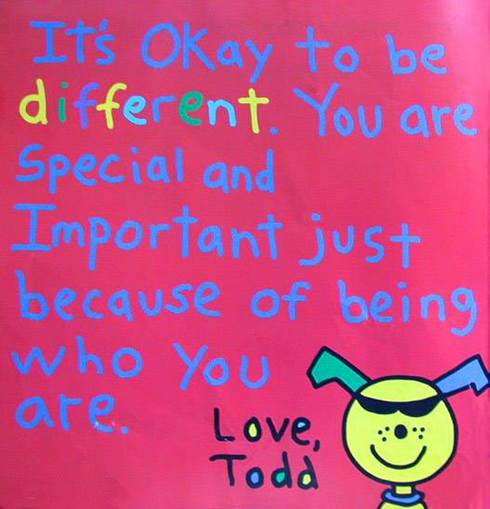 It's OKay to be
different. You are
Special and
Important just
because of being
who You
are.
Love,
Todd